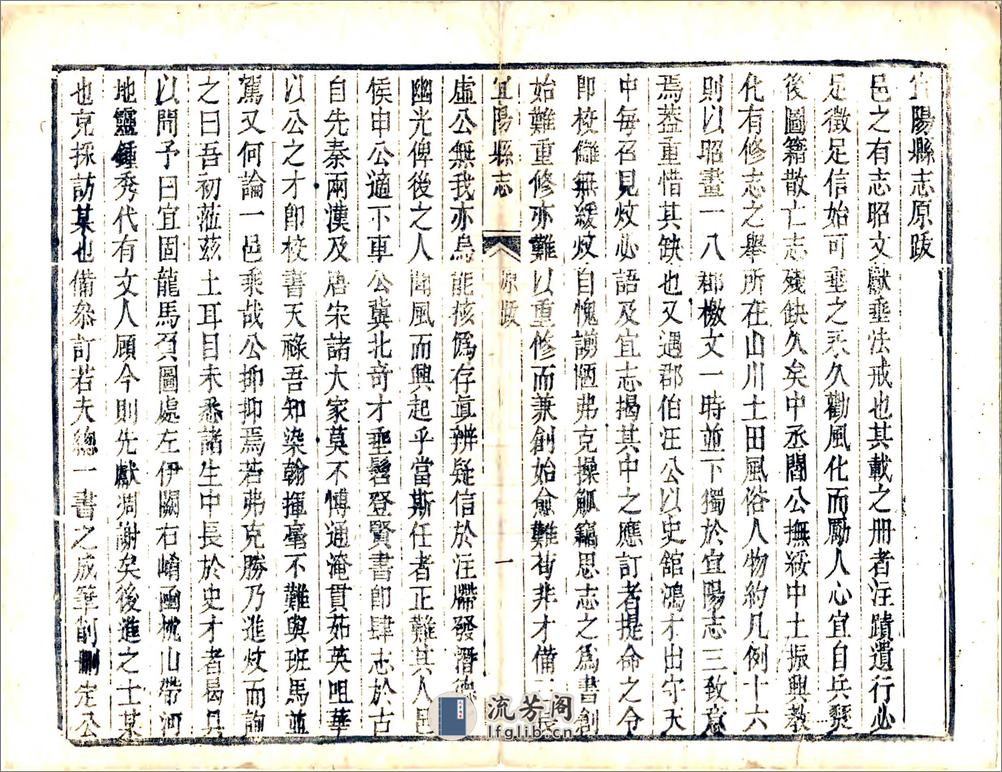 宜陽縣志原跋
邑之有志昭文獻垂法戒也其載之冊者注蹟遺行必
足徵足信始可垂之永久勸風化而勵人心宜自兵燹
後圖籍散亡志殘缺久矣中丞閻公撫綏中土振興教
化有修志之舉所在山川土田風俗人物約凡例十六
則以昭畫一八郡檄文一時並下獨於宜陽志三致意
焉葢重惜其缺也又遇郡伯汪公以史舘鴻才出守天
中每召見炆必語及宜志揭其中之應訂者提命之令
即校讎無緩炆自愧謭陋弗克操觚竊思志之爲書創
始難重修亦難以重修而兼創始愈難茍非才備三長
宜陽縣志
原跋
一
虛公無我亦烏能核僞存眞辨疑信於注滯發潛德之
幽光俾後之人聞風而興起乎當斯任者正難其人邑
侯申公適下車公冀北奇才垂髫登賢書即肆志於古
自先秦兩漢及唐宋諸大家莫不博通淹貫茹英咀華
以公之才即校書天祿吾知染翰揮毫不難與班馬並
駕又何論一邑乘哉公抑抑焉若弗克勝乃進炆而詢
之曰吾初蒞茲土耳目未悉諸生中長於史才者曷具
以問予曰宜固龍馬負圖處左伊闕右崤凾枕山帶河
地靈鍾秀代有文人顧今則先獻凋謝矣後進之士某
也克採訪某也備叅訂若夫總一書之成筆削刪定公
流芳阁
lfglib.cn